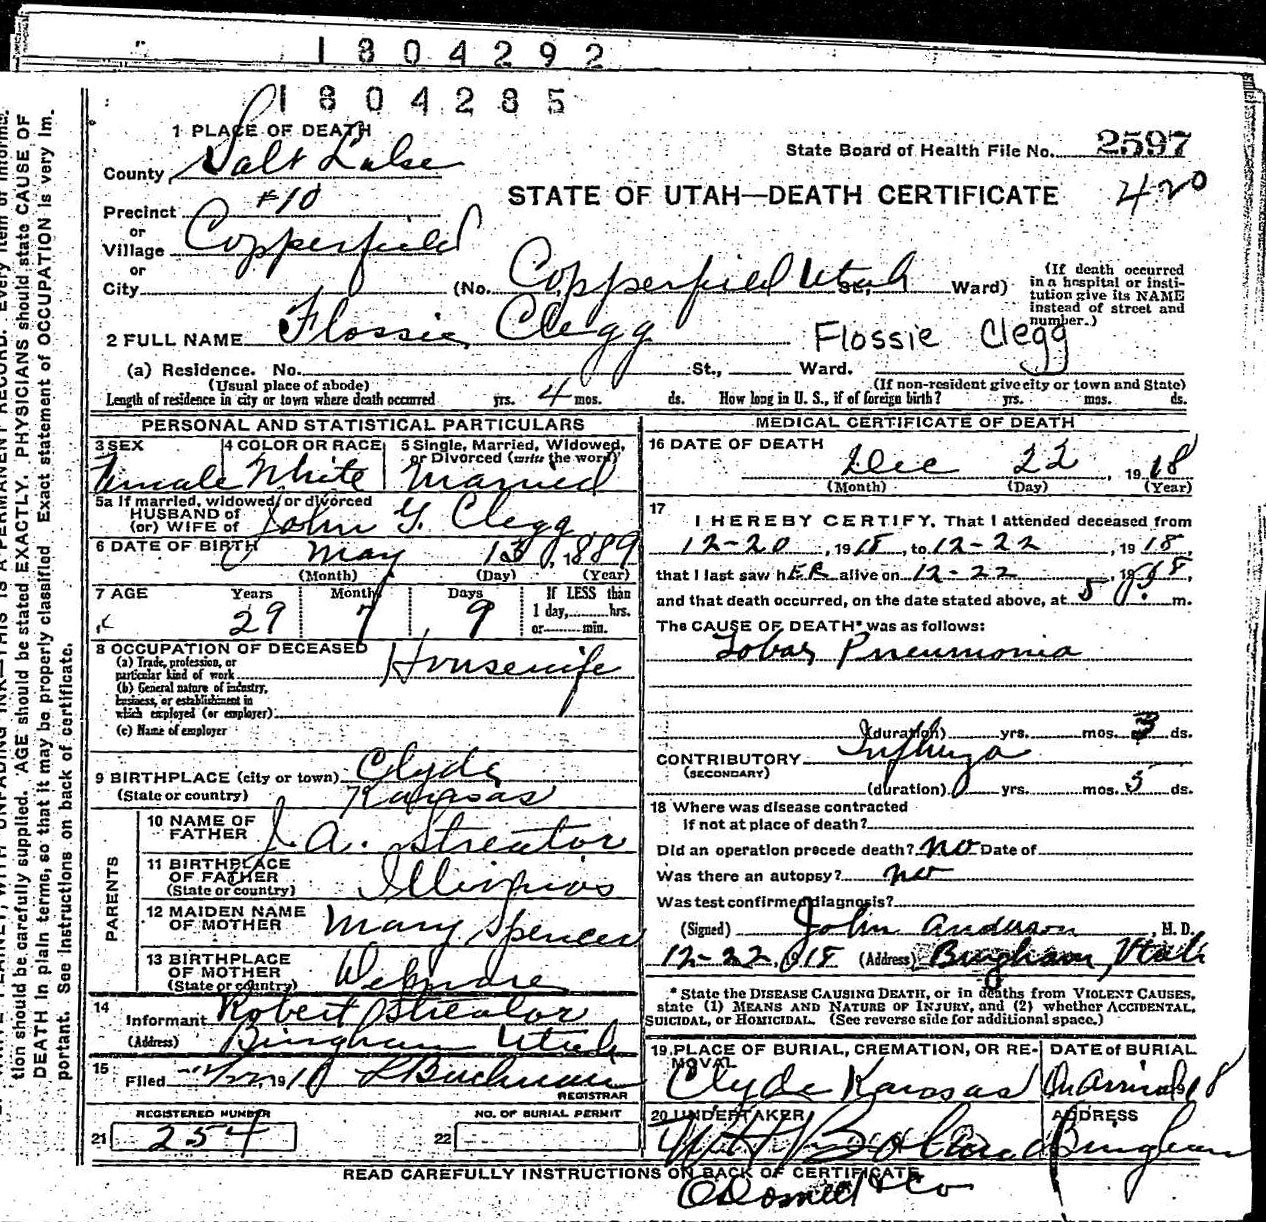 1804292
1804285
1 PLACE OF DEATH
County Salt Lake
State Board of Health File No. 2597
STATE OF UTAH—DEATH CERTIFICATE 420
Precinct #10
or
Village Copperfield
or
City (No. Copperfield Utah St., Ward)
(If death occurred
in a hospital or insti-
tution give its NAME
instead of street and
number.)
2 FULL NAME Flossie Clegg Flossie Clegg
(a) Residence. No. St., Ward.
(Usual place of abode) (If non-resident give city or town and State)
Length of residence in city or town where death occurred yrs. 4 mos. ds. How long in U. S., if of foreign birth? yrs. mos. ds.
PERSONAL AND STATISTICAL PARTICULARS
3 SEX 4 COLOR OR RACE 5 Single, Married, Widowed,
or Divorced (write the word)
Female White Married
5a If married, widowed, or divorced
HUSBAND of
(or) WIFE of John G. Clegg
6 DATE OF BIRTH May 13, 1889
(Month) (Day) (Year)
7 AGE Years Months Days If LESS than
1 day, hrs.
or min.
29 7 9
8 OCCUPATION OF DECEASED
(a) Trade, profession, or
particular kind of work Housewife
(b) General nature of industry,
business, or establishment in
which employed (or employer)
(c) Name of employer
9 BIRTHPLACE (city or town) Clyde
(State or country) Kansas
PARENTS
10 NAME OF
FATHER J. A. Streator
11 BIRTHPLACE
OF FATHER
(State or country) Illinois
12 MAIDEN NAME
OF MOTHER Mary Spencer
13 BIRTHPLACE
OF MOTHER
(State or country)
14
Informant Robert Streator
(Address) Bingham Utah
15
Filed 12/22 1918 Buchman
REGISTRAR
REGISTERED NUMBER NO. OF BURIAL PERMIT
21 254 22
MEDICAL CERTIFICATE OF DEATH
16 DATE OF DEATH
Dec 22 1918
(Month) (Day) (Year)
17
I HEREBY CERTIFY, That I attended deceased from
12-20, 1918, to 12-22, 1918,
that I last saw hER alive on 12-22, 1918,
and that death occurred, on the date stated above, at 5 P. m.
The CAUSE OF DEATH* was as follows:
Lobar Pneumonia
(duration) yrs. mos. 3 ds.
CONTRIBUTORY Influenza
(SECONDARY)
(duration) yrs. mos. 5 ds.
18 Where was disease contracted
if not at place of death?
Did an operation precede death? no Date of
Was there an autopsy? no
Was test confirmed diagnosis?
(Signed) John Anderson, M.D.
12-22, 1918 (Address) Bingham, Utah
*State the DISEASE CAUSING DEATH, or in deaths from VIOLENT CAUSES,
state (1) MEANS AND NATURE OF INJURY, and (2) whether ACCIDENTAL,
SUICIDAL, or HOMICIDAL. (See reverse side for additional space.)
19 PLACE OF BURIAL, CREMATION, OR RE-
MOVAL DATE of BURIAL
Clyde Kansas On Arrival 18
20 UNDERTAKER ADDRESS
Bingham
O'Donnell & Co
READ CAREFULLY INSTRUCTIONS ON BACK OF CERTIFICATE
tion should be carefully supplied. AGE should be stated EXACTLY. PHYSICIANS should state CAUSE OF
DEATH in plain terms, so that it may be properly classified. Exact statement of OCCUPATION is very im-
portant. See instructions on back of certificate.